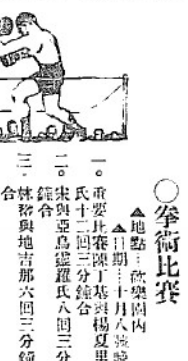 〇拳術比賽
▲地點…歡樂園內
▲日期…十月八號晚
一。重要比賽陳丁基與楊夏里
氏十二回三分鐘合
二。宋與亞烏靈羅氏八回三分
鐘合
三。林 與地吉那六回三分鐘
合